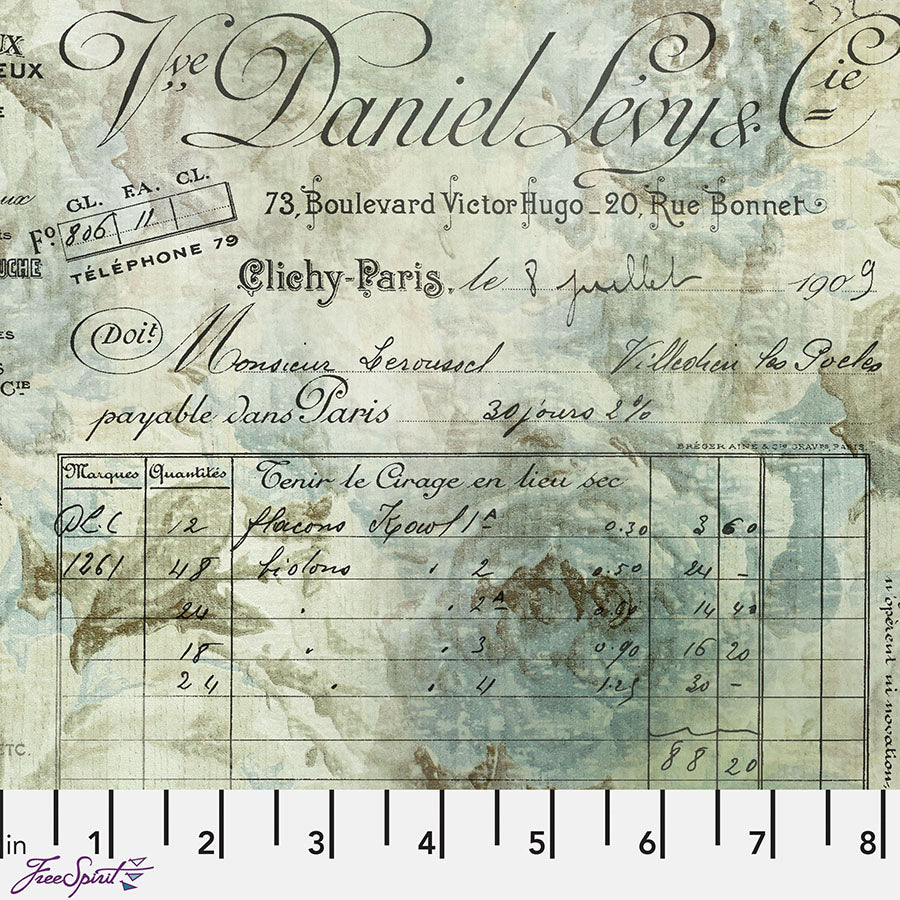 UX
EUX
Vve Daniel Lévy & Cie
73, Boulevard Victor Hugo _ 20, Rue Bonnet
GL. F.A. C.L.
Fo. 806 11
TÉLÉPHONE 79
Clichy-Paris, le 8 juillet 1909
Doit Monsieur Leroussel Villedieu les Poeles
CIE
payable dans Paris 30 jours 2%
BRÉGER AINÉ & Cie GRAVrs, PARIS
Marques Quantités Tenir le Cirage en lieu sec
D.L.C 12 flacons 1A 0.30 3 60
1261 48 bidons " 2 0.50 24 -
24 " " 2A 0.60 14 40
18 " " 3 0.90 16 20
24 " " 4 1.25 30 -
88 20
ETC.
n'opèrent ni novation
in 1 2 3 4 5 6 7 8
FreeSpirit